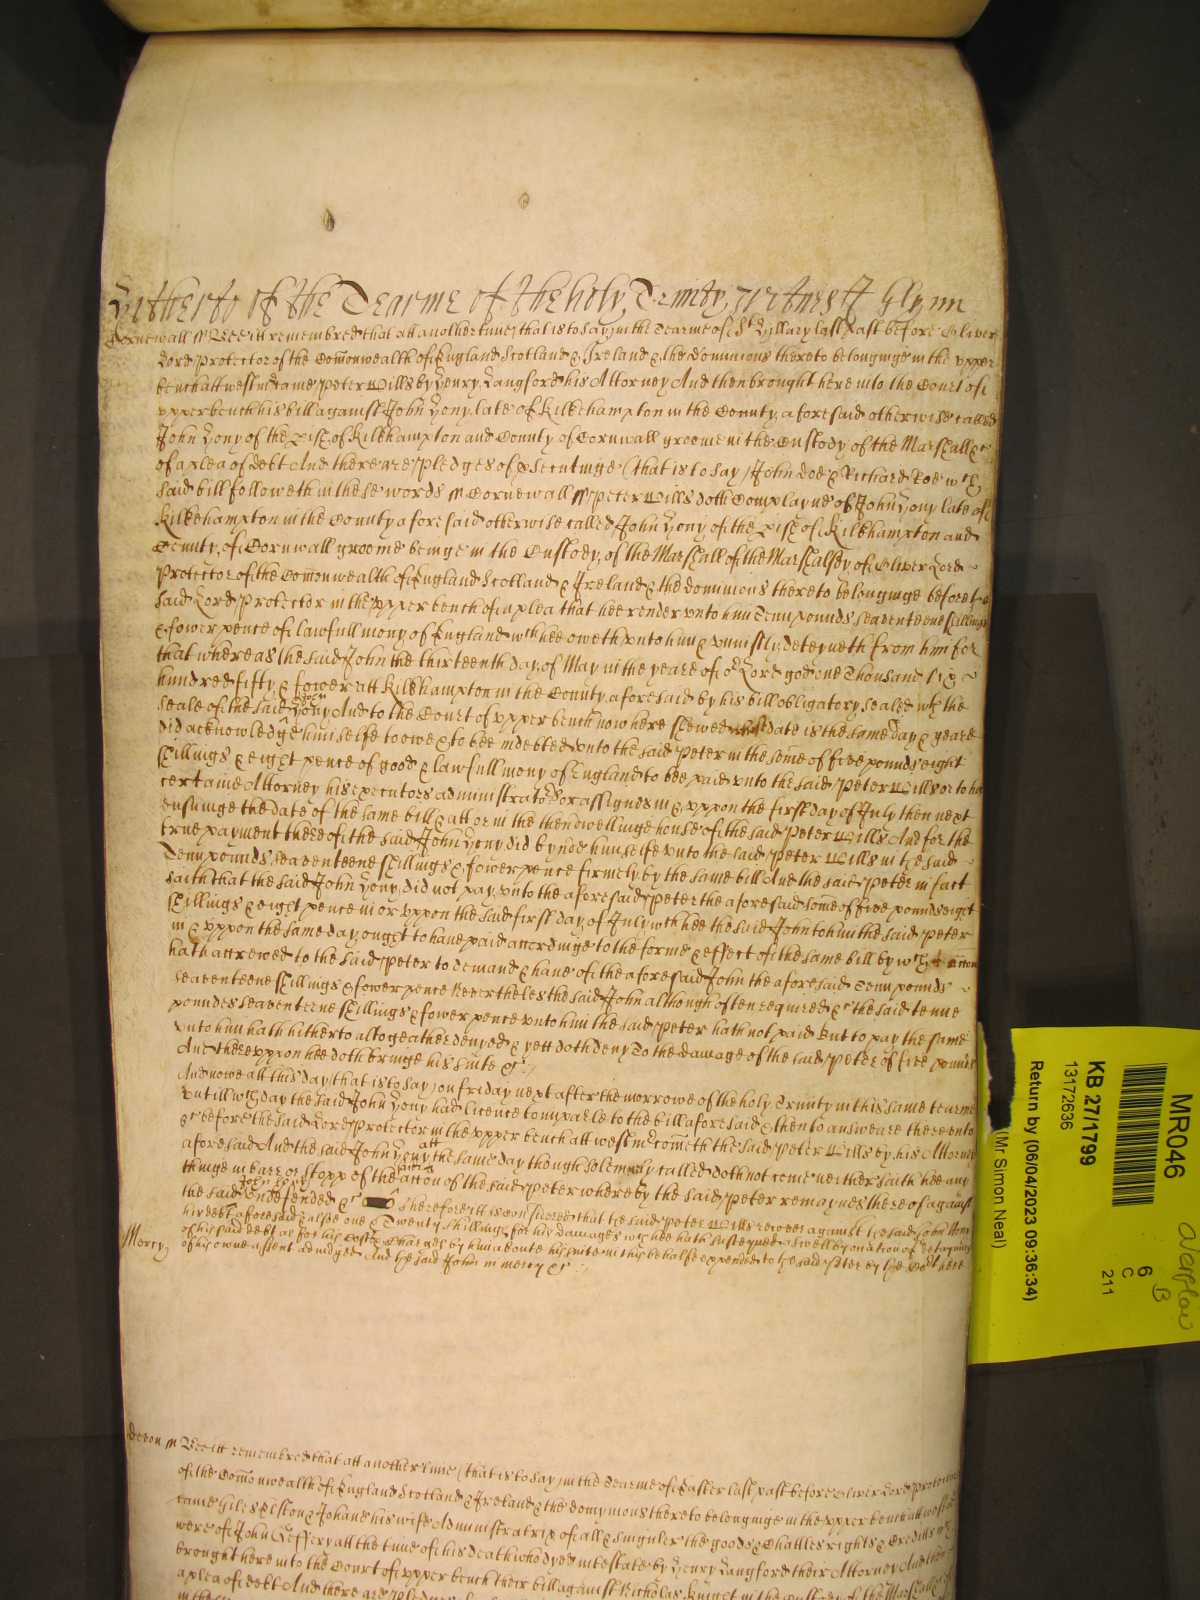 Hitherto of the Tearme of the holy Trinity Witnes J Glynn
Cornewall ss Bee itt remembred that att another time that is to say in the Tearme of St Hillary last past before Oliver
Lord Protector of the Comonwealth of England Scotland & Ireland & the dominions thereto belonginge in the upper
bench att westm came Peter Wills by Henry Langford his Attorney And then brought here into the Court of
upper bench his bill against John Hony late of Kilkehampton in the County aforesaid otherwise called
John Hony of the pish of Kilkhampton and County of Cornwall groome in the Custody of the Marshall &c
of a plea of debt And there are pledges of psecutinge (that is to say) John Doe & Richard Roe wch
said bill followeth in these words ss Cornewall ss Peter Wills doth Complayne of John Hony late of
Kilkehampton in the County aforesaid otherwise called John Hony of the pish of Kilkhampton and
County of Cornwall groome beinge in the Custody of the Marshall of the Marshalsey of Oliver Lord
Protector of the Comonwealth of England Scotland & Ireland & the dominions thereto belonginge before the
said Lord Protector in the upper bench of a plea that hee render unto him Tenn pounds seaventeene shillings
& fower pence of lawfull mony of England wch hee oweth unto him & uniustly deteyneth from him for
that whereas the said John the thirteenth day of May in the yeare of or Lord god one Thousand six
hundred fifty & fower att Kilkhampton in the County aforesaid by his bill obligatory sealed wth the
seale of the said John Hony And to the Court of upper bench now here shewed whose date is the same day & yeare
did acknowledge himselfe to owe & to bee indebted unto the said Peter in the some of five pounds eight
shillings & eight pence of good & lawfull mony of England to bee paid unto the said Peter Wills or to his
certaine Attorney his executors administrators or assignes in & uppon the first day of July then next
ensuinge the date of the same bill & att or in the then dwellinge house of the said Peter Wills And for the
true payment thereof the said John Hony did bynde himselfe unto the said Peter Wills in the said
Tenn pounds seaventeene shillings & fower pence firmely by the same bill And the said Peter in fact
saith that the said John Hony did not pay unto the aforesaid Peter the aforesaid some of five pounds eight
shillings & eight pence in or uppon the said first day of July wch hee the said John to him the said Peter
in & uppon the same day ought to have paid accordinge to the forme & effect of the same bill by wch action
hath accrewed to the said Peter to demand & have of the aforesaid John the aforesaid Tenn pounds
seaventeene shillings & fower pence Neverthelesse the said John although often required &c the said tenne
poundes seaventeene shillings & fower pence unto him the said Peter hath not paid But to pay the same
unto him hath hitherto altogeather denyed & yett doth deny To the damage of the said Peter of five pounds
And thereuppon hee doth bringe his suite &c
And now att this day (that is to say) on friday next after the morrowe of the holy Trinity in this same tearme
untill wch day the said John Hony had licence to imparle to the bill aforesaid & then to answeare thereunto
&c before the said Lord Protector in the upper bench att westm cometh the said Peter Wills by his Attorney
aforesaid And the said John Hony att the same day though solemnly called doth not come neither saith hee any
thinge in barr or stopp of the action of the said Peter whereby the said Peter remaynes thereof against
the said John Hony undefended &c Therefore itt is considered that the said Peter Wills recover against the said John Hony
his debt aforesaid & alsoe one & Twenty shillings for his damages wch hee hath susteyned aswell by occasion of detayning
Mercy
of his said debt as for his Costs & Charges by him aboute his suite in this behalfe expended to the said Peter by the Court here
of his owne assent adiudged And the said John in mercy &c
Devon ss Bee itt remembred that att another time (that is to say) in the Tearme of Easter last past before Oliver Lord Protector
of the Comonwealth of England Scotland & Ireland & the domynions thereto belonginge in the upper bench att westm
came Giles Elston & Johane his wife Administratrix of all & singuler the goods & Chattles rights & Creditts wch
were of John Gefferry att the time of his death who dyed intestate by Henry Langford their Attorney And then
brought here into the Court of upper bench their bill against Nicholas Knight in the custody of the Marshall &c of
a plea of debt And there are pledges
MR046
KB 27/1799
13172636
Return by (06/04/2023 09:36:34)
(Mr Simon Neal)
6
C
211
B
Overflow